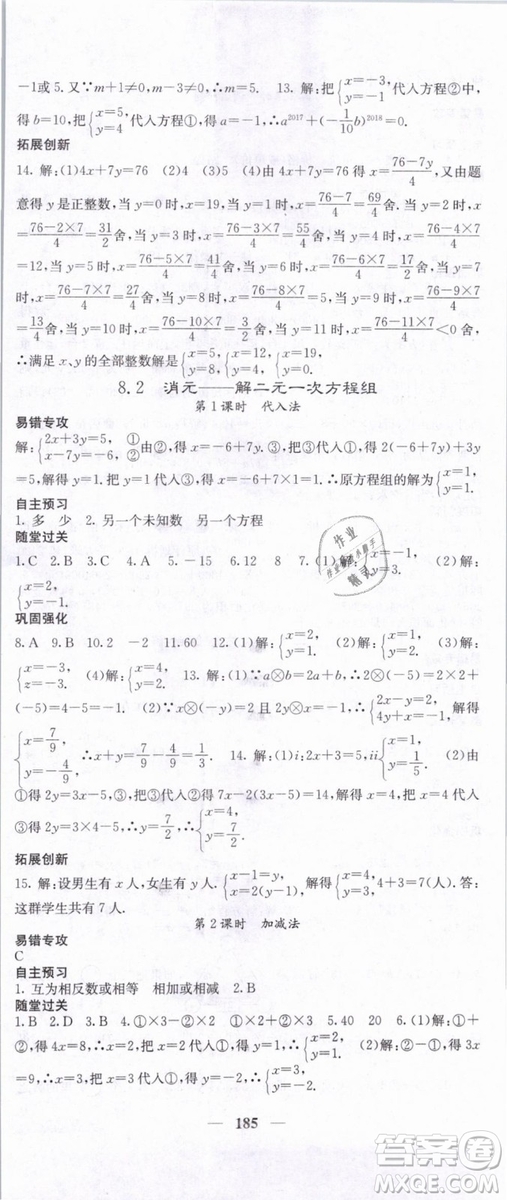 -1或5.又∵m+1≠0,m-3≠0,∴m=5. 13.解:把{x=-3, y=-1代入方程②中,
得b=10,把{x=5, y=4代入方程①,得a=-1,∴a^2017+(-1/10 b)^2018=0.
拓展创新
14.解:(1)4x+7y=76 (2)4 (3)5 (4)由4x+7y=76,得x=(76-7y)/4,又由题
意得y是正整数,当y=0时,x=19,当y=1时,x=(76-7)/4=69/4舍,当y=2时,
x=(76-2×7)/4=31/2舍,当y=3时,x=(76-3×7)/4=55/4舍,当y=4时,x=(76-4×7)/4
=12,当y=5时,x=(76-5×7)/4=41/4舍,当y=6时,x=(76-6×7)/4=17/2舍,当y=7时,
x=(76-7×7)/4=27/4舍,当y=8时,x=(76-8×7)/4=5,当y=9时,x=(76-9×7)/4
=13/4舍,当y=10时,x=(76-10×7)/4=3/2舍,当y=11时,x=(76-11×7)/4<0舍,
∴满足x、y的全部整数解是{x=5, y=8, {x=12, y=4, {x=19, y=0.
8.2 消元——解二元一次方程组
第1课时 代入法
易错专攻
解:{2x+3y=5, ① x-7y=-6, ②由②,得x=-6+7y.③把③代入①,得2(-6+7y)+3y
=5,解得y=1.把y=1代入③,得x=-6+7×1=1.∴原方程组的解为{x=1, y=1.
自主预习
1.多 少 2.另一个未知数 另一个方程
随堂过关
1.C 2.B 3.C 4.A 5.-15 6.12 8 7.(1)解:{x=-1, (2)解:
{x=2, y=-1.
巩固强化
8.A 9.B 10.2 -2 11.60 12.(1)解:{x=2, y=1. (2)解:{x=1, y=1.
{x=-3, z=-3. (4)解:{x=2, y=-3. 13.解:(1)∵a⊗b=2a+b,∴2⊗(-5)=2×2+
(-5)=4-5=-1. (2)∵x⊗(-y)=2,且2y⊗x=-1,∴{2x-y=2, 4y+x=-1,解得
{x=7/9, y=-4/9, ∴x+y=7/9-4/9=1/3. 14.解:(1)i:2(3x+5),ii{x=1, y=1/5. (2)由
①得2y=3x-5,③,把③代入②,得7x-2(3x-5)=14,解得x=4,把x=4代入
③得2y=3×4-5,解得y=7/2.∴{x=4, y=7/2.
拓展创新
15.解:设男生有x人,女生有y人.{x-1=y, x=2(y-1).解得{x=4, y=3,4+3=7(人).答:
这群学生共有7人.
第2课时 加减法
易错专攻
C
自主预习
1.互为相反数或相等 相加或相减 2.B
随堂过关
1.B 2.D 3.A 4.①×3-②×2 ①×2+②×5 5.40 20 6.(1)解:①+
②,得4x=8,解得x=2.把x=2代入①,得y=1.∴{x=2, y=1. (2)解:①+②,得3x
=9,∴x=3,把x=3代入①得3-y=4,∴y=-1.∴{x=3, y=-1.
185
作业
精灵
答案圈
MXQE.COM